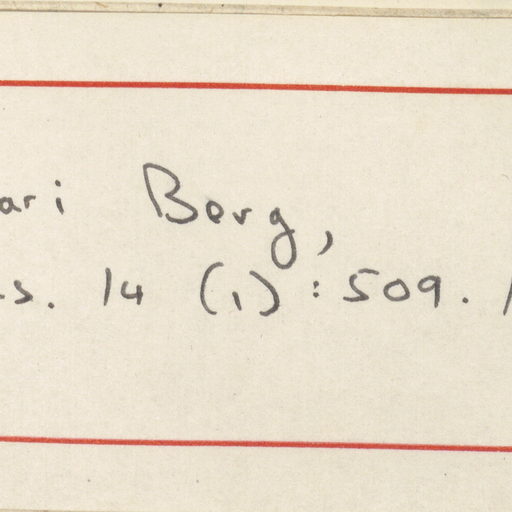 ari Berg,
s. 14 (1): 509.